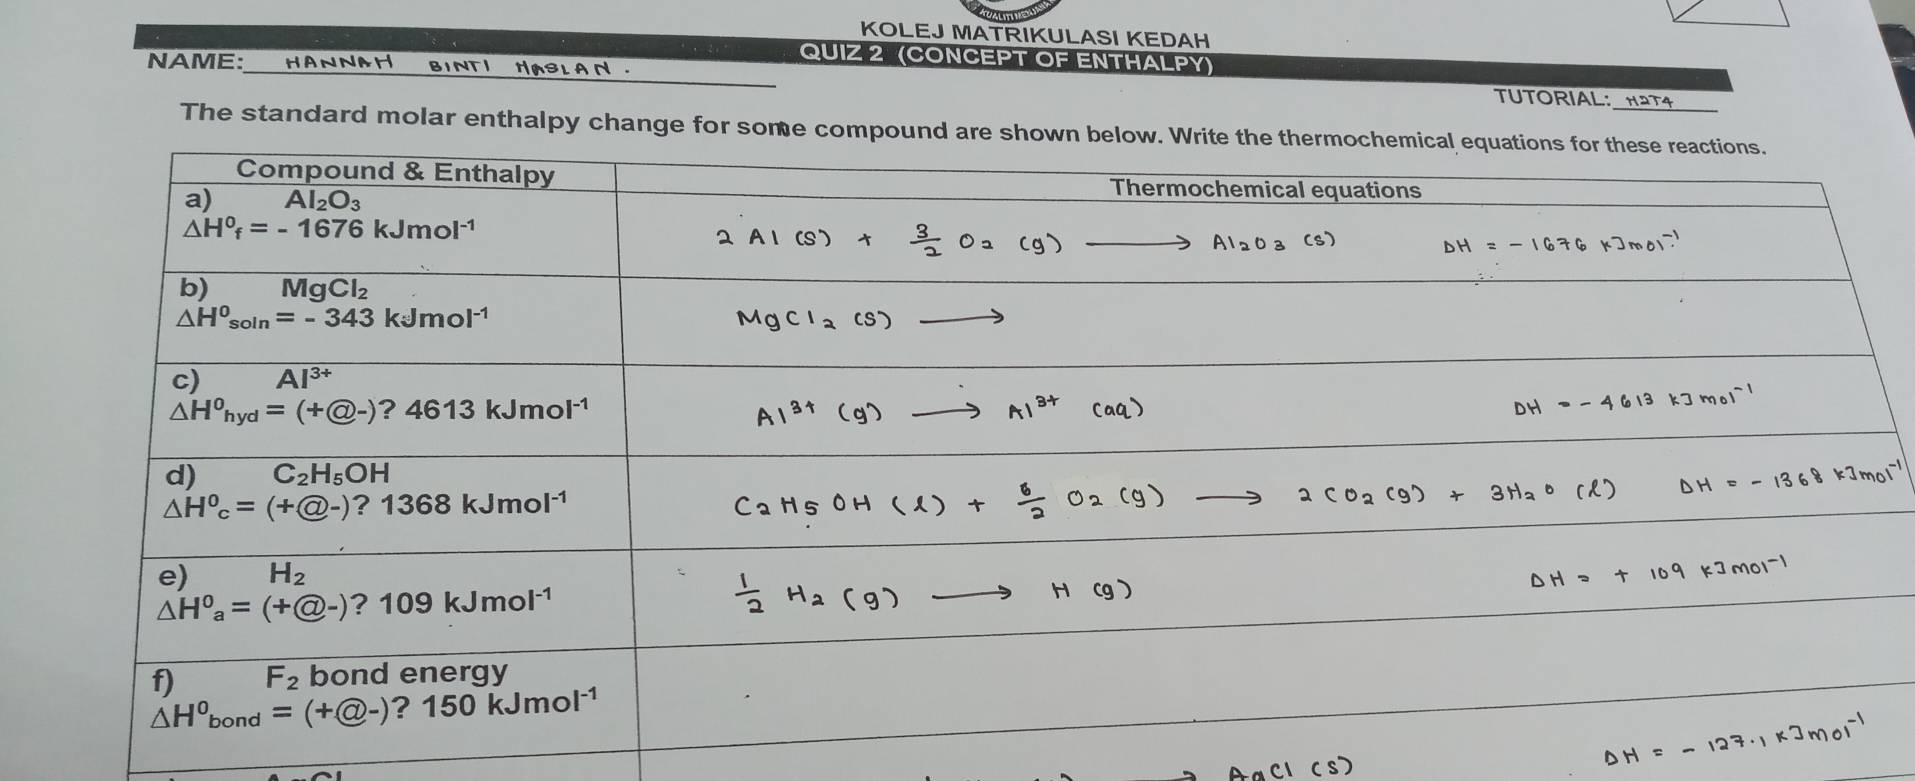 KUALITI MENJANA
KOLEJ MATRIKULASI KEDAH
QUIZ 2 (CONCEPT OF ENTHALPY)
NAME: HANNAH BINTI HASLAN.
TUTORIAL: H2T4
The standard molar enthalpy change for some compound are shown below. Write the thermochemical equations for these reactions.
Compound & Enthalpy
Thermochemical equations
a) Al₂O₃
ΔH⁰f = - 1676 kJmol⁻¹
2 Al (s) + 3/2 O₂ (g) ⟶ Al₂O₃ (s) ΔH = - 1676 kJmol⁻¹
b) MgCl₂
ΔH⁰soln = - 343 kJmol⁻¹
MgCl₂ (s) ⟶
c) Al³⁺
ΔH⁰hyd = (+@-)? 4613 kJmol⁻¹
Al³⁺ (g) ⟶ Al³⁺ (aq) ΔH = - 4613 kJ mol⁻¹
d) C₂H₅OH
ΔH⁰c = (+@-)? 1368 kJmol⁻¹
C₂H₅OH (l) + 6/2 O₂ (g) ⟶ 2CO₂ (g) + 3H₂O (l) ΔH = - 1368 kJmol⁻¹
e) H₂
ΔH⁰a = (+@-)? 109 kJmol⁻¹
1/2 H₂ (g) ⟶ H (g) ΔH = + 109 kJmol⁻¹
f) F₂ bond energy
ΔH⁰bond = (+@-)? 150 kJmol⁻¹
⟶ AgCl (s) ΔH = - 127.1 kJmol⁻¹